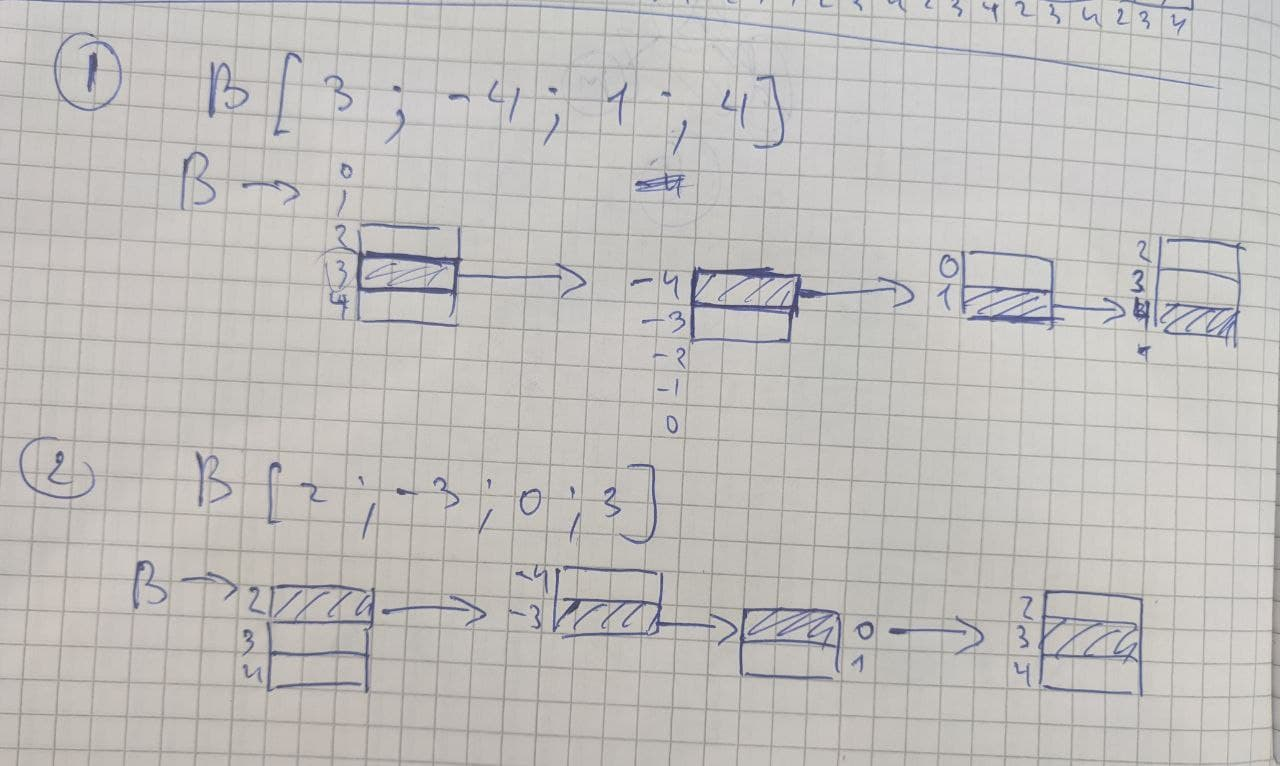 2 3 4 2 3 4 2 3 4
1 B [ 3 ; -4 ; 1 ; 4 ]
B → 0
1
2
3
4
-4
-3
-2
-1
0
0
1
2
3
4
2 B [ 2 ; -3 ; 0 ; 3 ]
B → 2
3
4
-4
-3
0
1
2
3
4